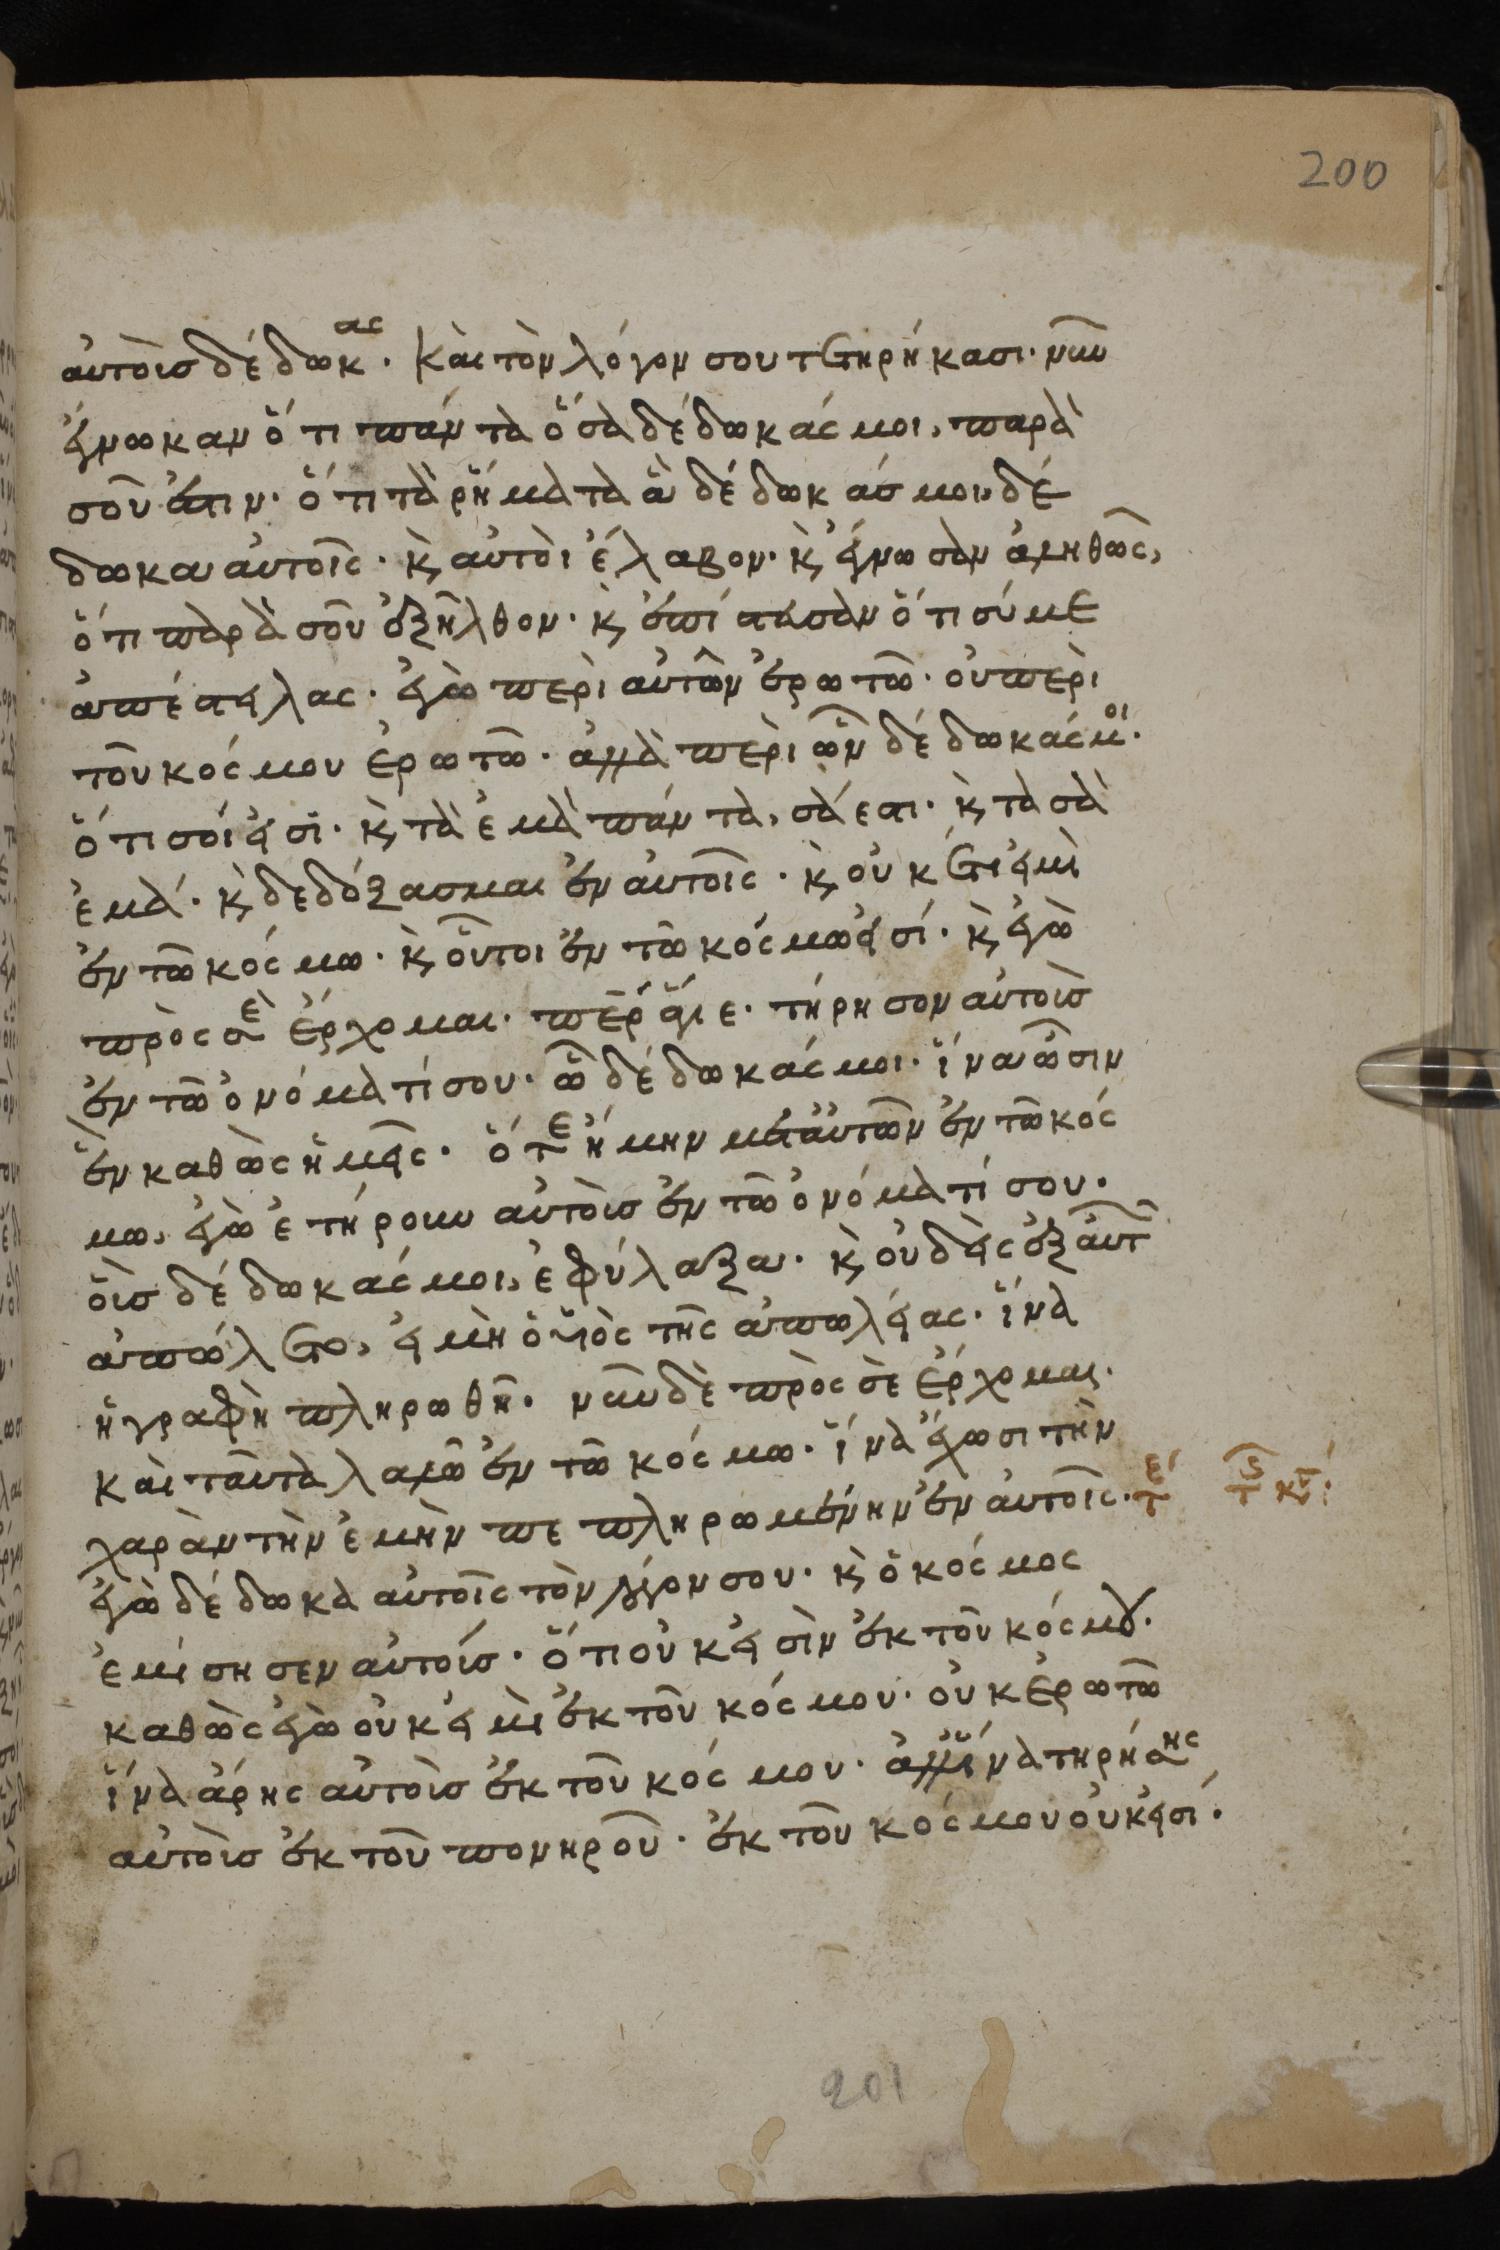 200
αὐτοὺς δέδωκας. Καὶ τὸν λόγον σου τετηρήκασι. νῦν
ἔγνωκαν ὅτι πάντα ὅσα δέδωκάς μοι, παρὰ
σοῦ ἐστιν. ὅτι τὰ ῥήματα ἃ δέδωκάς μοι, δέ
δωκα αὐτοῖς. κ αὐτοὶ ἔλαβον. κ ἔγνωσαν ἀληθῶς,
ὅτι παρὰ σοῦ ἐξῆλθον. κ ἐπίστευσαν ὅτι σύ με
ἀπέστειλας. ἐγὼ περὶ αὐτῶν ἐρωτῶ. οὐ περὶ
τοῦ κόσμου ἐρωτῶ. ἀλλὰ περὶ ὧν δέδωκάς μοι.
ὅτι σοί εἰσι. κ τὰ ἐμὰ πάντα, σά ἐστι. κ τὰ σὰ
ἐμά. κ δεδόξασμαι ἐν αὐτοῖς. κ οὐκ ἔτι εἰμὶ
ἐν τῶ κόσμω. κ οὗτοι ἐν τῶ κόσμω εἰσί. κ ἐγὼ
πρὸς σὲ ἔρχομαι. περ ἅγιε. τήρησον αὐτοὺς
ἐν τῶ ὀνόματί σου. ὧ δέδωκάς μοι. ἵνα ὦσιν
ἓν καθὼς ἡμεῖς. ὅτε ἤμην μετ αὐτῶν ἐν τῶ κόσ
μω, ἐγὼ ἐτήρουν αὐτοὺς ἐν τῶ ὀνόματί σου.
οὓς δέδωκάς μοι, ἐφύλαξα. κ οὐδεὶς ἐξ αὐτ
ἀπώλετο, εἰ μὴ ὁ υἱὸς τῆς ἀπωλείας. ἵνα
ἡ γραφὴ πληρωθῆ. νῦν δὲ πρὸς σὲ ἔρχομαι.
Καὶ ταῦτα λαλῶ ἐν τῶ κόσμω. ἵνα ἔχωσι τὴν
χαρὰν τὴν ἐμὴν πεπληρωμένην ἐν αὐτοῖς.
ἐγὼ δέδωκα αὐτοῖς τὸν λόγον σου. κ ὁ κόσμος
ἐμίσησεν αὐτούς. ὅτι οὐκ εἰσὶν ἐκ τοῦ κόσμου.
καθὼς ἐγὼ οὐκ εἰμὶ ἐκ τοῦ κόσμου. οὐκ ἐρωτῶ
ἵνα ἄρης αὐτοὺς ἐκ τοῦ κόσμου. ἀλλ ἵνα τηρήσης
αὐτοὺς ἐκ τοῦ πονηροῦ. ἐκ τοῦ κόσμου οὐκ εἰσί.
201